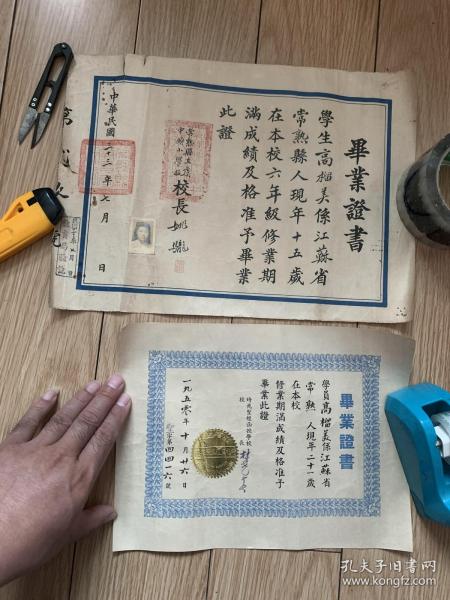 畢業證書
學生高榴美係江蘇省
常熟縣人現年十五歲
在本校六年級修業期
滿成績及格准予畢業
此證
校長姚
中華民國三十三年七月 日
畢業證書
學員高榴美係江蘇省
常熟人現年二十一歲
在本校
修業期滿成績及格准予
畢業此證
時兆聖經函授學校
校長
一九五〇年十月廿六日
字第四四一六號
孔夫子旧书网
www.kongfz.com